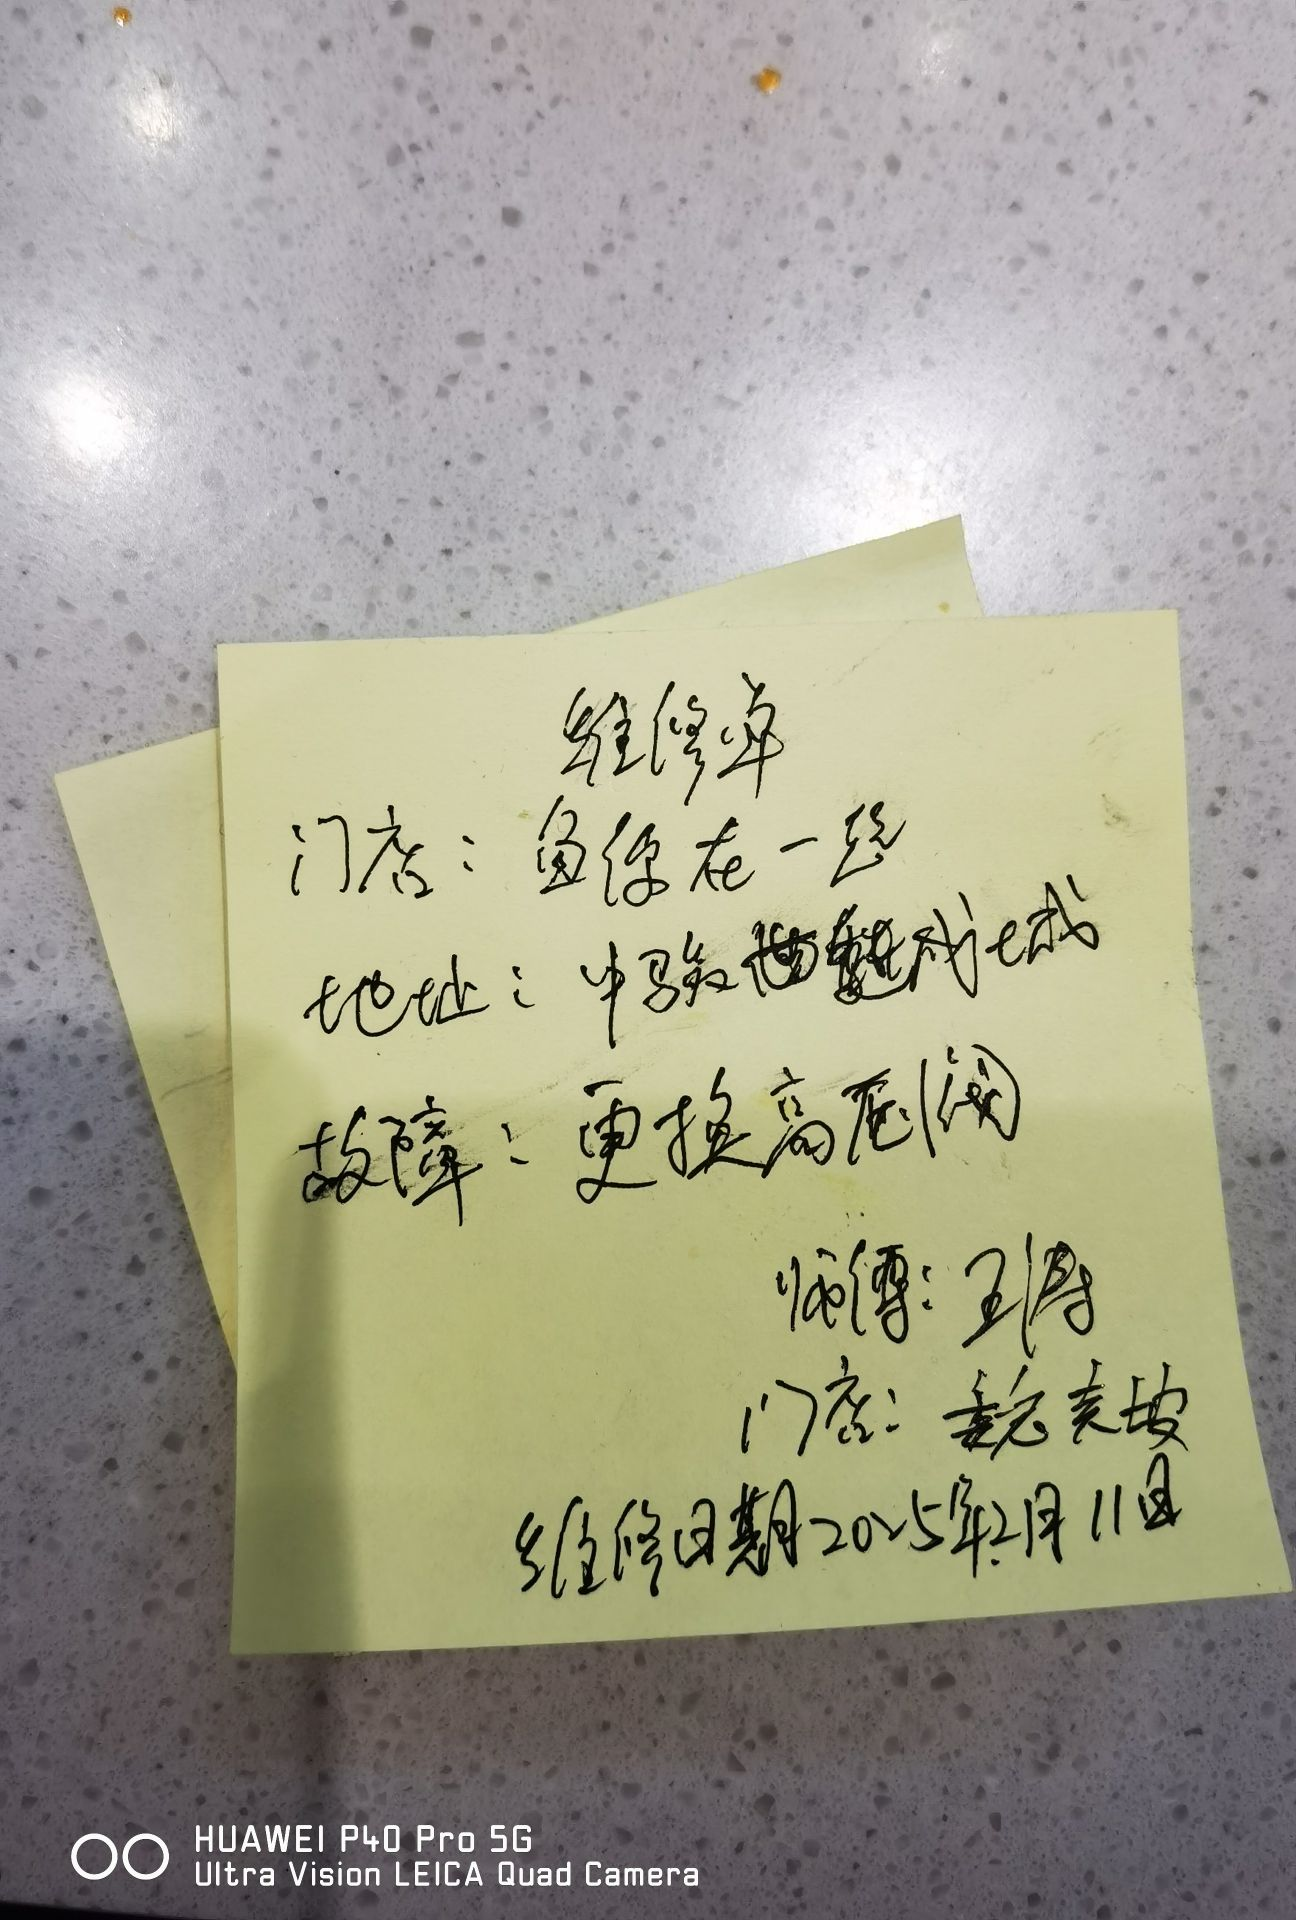 维修单
门店：鱼你在一起
地址：中骏世界城
故障：更换高压阀
师傅：王涛
门店：魏
维修日期2025年2月11日
HUAWEI P40 Pro 5G
Ultra Vision LEICA Quad Camera